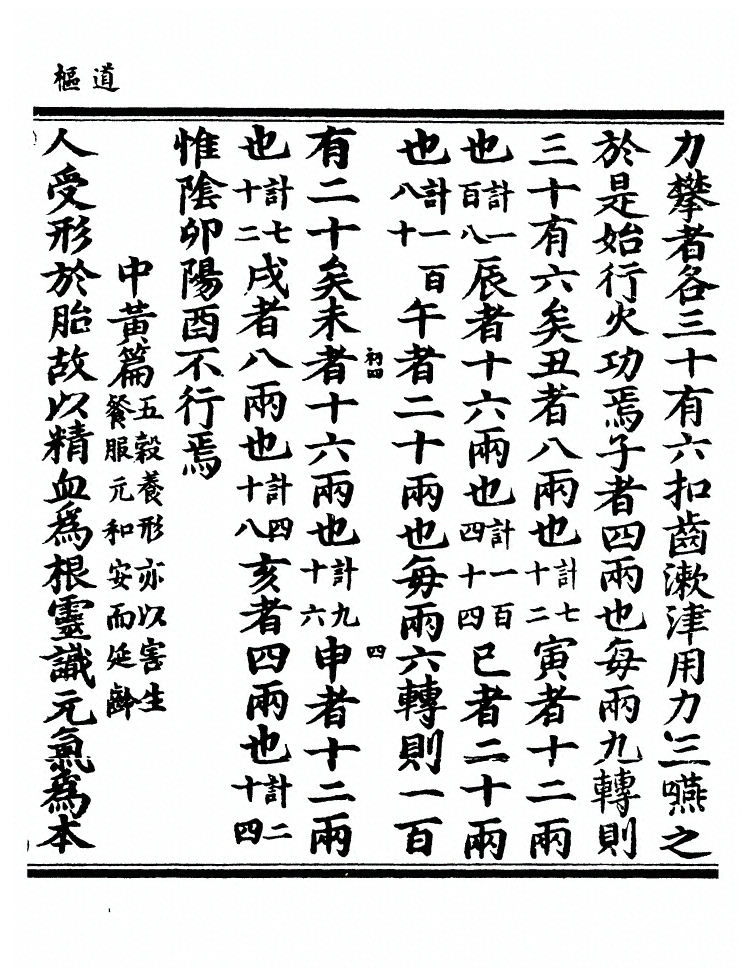 道樞
力攀者各三十有六扣齒漱津用力三嚥之
於是始行火功焉子者四兩也每兩九轉則
三十有六矣丑者八兩也計七十二寅者十二兩
也計一百八辰者十六兩也計一百四十四巳者二十兩
也計一百八十午者二十兩也每兩六轉則一百
初四 四
有二十矣未者十六兩也計九十六申者十二兩
也計七十二戌者八兩也計四十八亥者四兩也計二十四
惟陰卯陽酉不行焉
中黃篇五穀養形亦以害生餐服元和安而延齡
人受形於胎故以精血爲根靈識元氣爲本